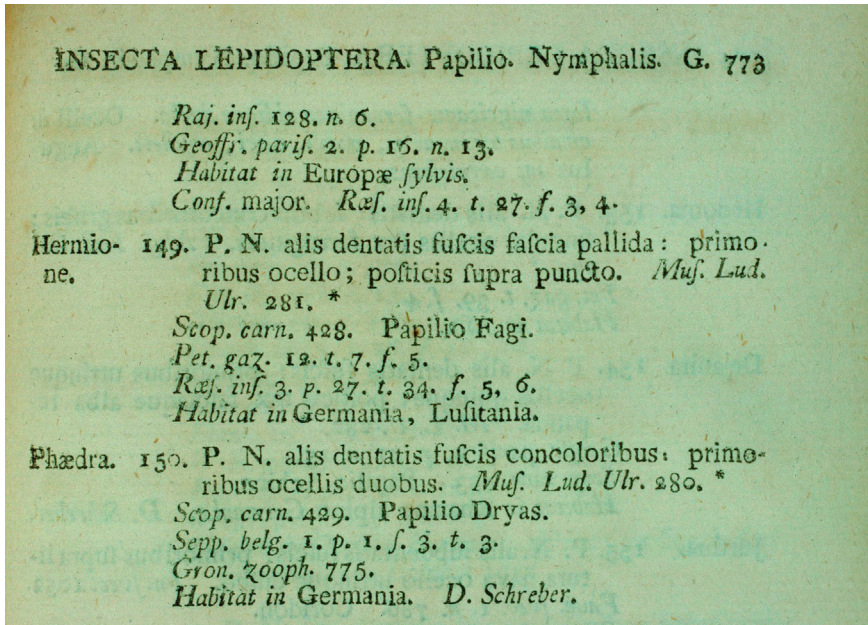 INSECTA LEPIDOPTERA. Papilio. Nymphalis. G. 773
Raj. inſ. 128. n. 6.
Geoffr. pariſ. 2. p. 16. n. 13.
Habitat in Europæ ſylvis.
Conf. major. Rœſ. inſ. 4. t. 27. f. 3, 4.
Hermio- 149. P. N. alis dentatis fuſcis faſcia pallida: primo-
ne. ribus ocello; poſticis ſupra puncto. Muſ. Lud.
Ulr. 281. *
Scop. carn. 428. Papilio Fagi.
Pet. gaz. 12. t. 7. f. 5.
Rœſ. inſ. 3. p. 27. t. 34. f. 5, 6.
Habitat in Germania, Luſitania.
Phædra. 150. P. N. alis dentatis fuſcis concoloribus: primo-
ribus ocellis duobus. Muſ. Lud. Ulr. 280. *
Scop. carn. 429. Papilio Dryas.
Sepp. belg. 1. p. 1. ſ. 3. t. 3.
Gron. zooph. 775.
Habitat in Germania. D. Schreber.